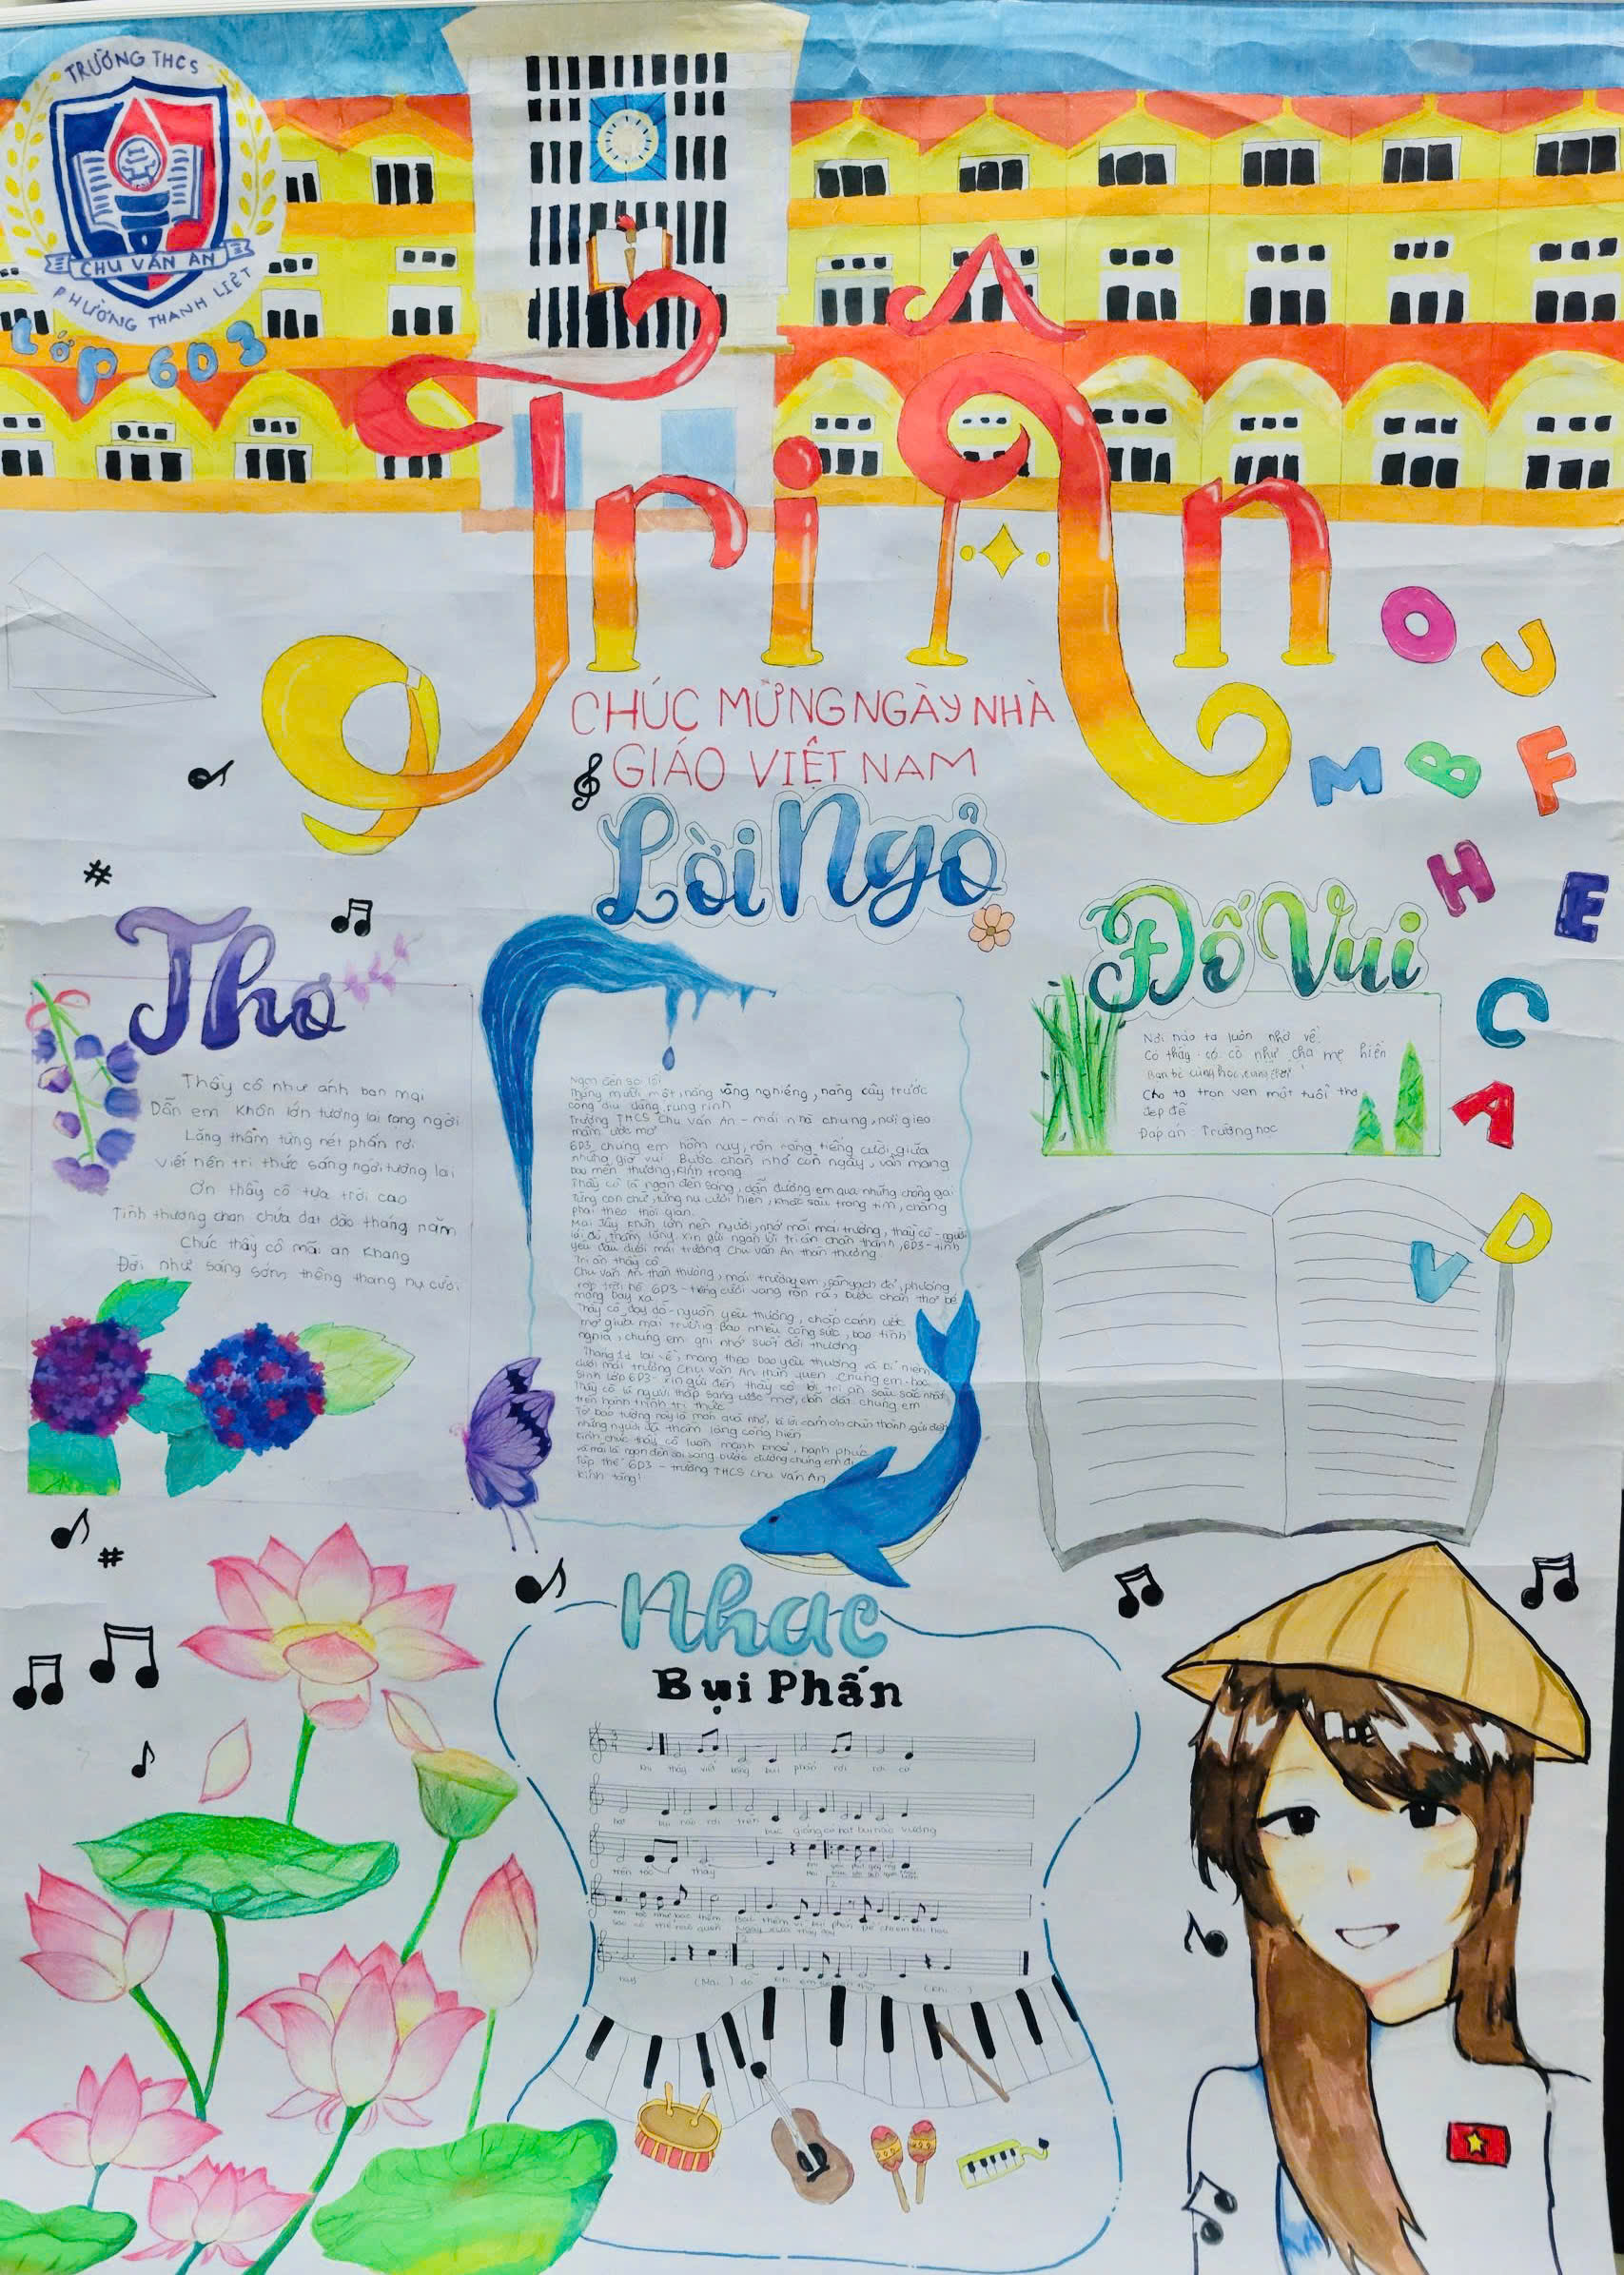 TRƯỜNG THCS
CHU VĂN AN
PHƯỜNG THANH LIỆT
Lớp 6D3
Tri Ân
CHÚC MỪNG NGÀY NHÀ
GIÁO VIỆT NAM
O U
M B F
H E
C
A
D
V
Lời Ngỏ
Thơ
Thầy cô như ánh ban mai
Dẫn em khôn lớn tương lai rạng ngời
Lặng thầm từng nét phấn rơi
Viết nên tri thức sáng ngời tương lai
Ơn thầy cô tựa trời cao
Tình thương chan chứa dạt dào tháng năm
Chúc thầy cô mãi an khang
Đời như sáng sớm thênh thang nụ cười
Ngọn đèn soi lối
Tháng mười một, nắng vàng nghiêng, hàng cây trước
cổng dịu dàng rung rinh
Trường THCS Chu Văn An - mái nhà chung, nơi gieo
mầm ước mơ
6D3 chúng em hôm nay, rộn ràng tiếng cười giữa
những giờ vui. Bước chân nhỏ còn ngây, vẫn mang
bao mến thương, kính trọng
Thầy cô là ngọn đèn sáng, dẫn đường em qua những chông gai
Từng con chữ, từng nụ cười hiền, khắc sâu trong tim, chẳng
phai theo thời gian.
Mai này khôn lớn nên người, nhớ mãi mái trường, thầy cô - người
lái đò thầm lặng xin gửi ngàn lời tri ân chân thành, 6D3 - tình
yêu đầu dưới mái trường Chu Văn An thân thương
Tri ân thầy cô
Chu Văn An thân thương, mái trường em, sân gạch đỏ, phượng
rợp trời hè 6D3 - tiếng cười vang rộn rã, bước chân thơ bé
mộng bay xa
Thầy cô dạy dỗ - nguồn yêu thương, chắp cánh ước
mơ giữa mái trường Bao nhiêu công sức, bao tình
nghĩa, chúng em ghi nhớ suốt đời thương
Tháng 11 lại về, mang theo bao yêu thương và kỉ niệm
dưới mái trường Chu Văn An thân quen. Chúng em - học
sinh lớp 6D3 - xin gửi đến thầy cô lời tri ân sâu sắc nhất
Thầy cô là người thắp sáng ước mơ, dẫn dắt chúng em
trên hành trình tri thức
Tờ báo tường này là món quà nhỏ, là lời cảm ơn chân thành gửi đến
những người đã thầm lặng cống hiến
Kính chúc thầy cô luôn mạnh khoẻ, hạnh phúc
và mãi là ngọn đèn soi sáng bước đường chúng em đi
Tập thể 6D3 - trường THCS Chu Văn An
Kính tặng!
Đố Vui
Nơi nào ta luôn nhớ về
Có thầy có cô như cha mẹ hiền
Bạn bè cùng học, cùng chơi
Cho ta trọn vẹn một tuổi thơ
đẹp đẽ
Đáp án: Trường học
Nhạc
Bụi Phấn
Khi thầy viết bảng bụi phấn rơi rơi có
hạt bụi nào rơi trên bục giảng có hạt bụi nào vương
trên tóc thầy